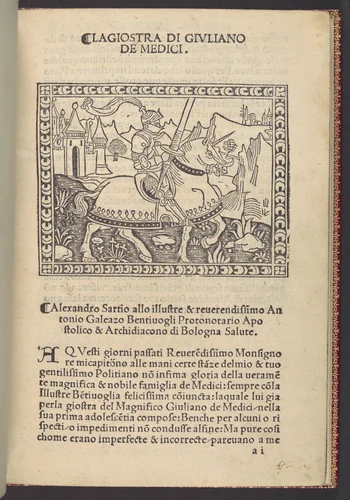 ⸿LAGIOSTRA DI GIVLIANO
DE MEDICI.
⸿Alexandro Sartio allo illustre & reuerendissimo An
tonio Galeazo Bentiuogli Protonotario Apo
stolico & Archidiacono di Bologna Salute.
A Q Vesti giorni passati Reuerēdissimo Monsigno
re mi capitōno alle mani certe stāze del mio & tuo
gentilissimo Politiano nō infima gloria della ueramē
te magnifica & nobile famiglia de Medici: sempre cōla
Illustre Bētiuoglia felicissima cōiuncta: laquale lui gia
perla giostra del Magnifico Giuliano de Medici nella
sua prima adolescētia compose: Benche per alcuni o ri
specti, o impedimenti nō condusse alfine: Ma pure cosi
chome erano imperfecte & incorrecte pareuano a me
a i